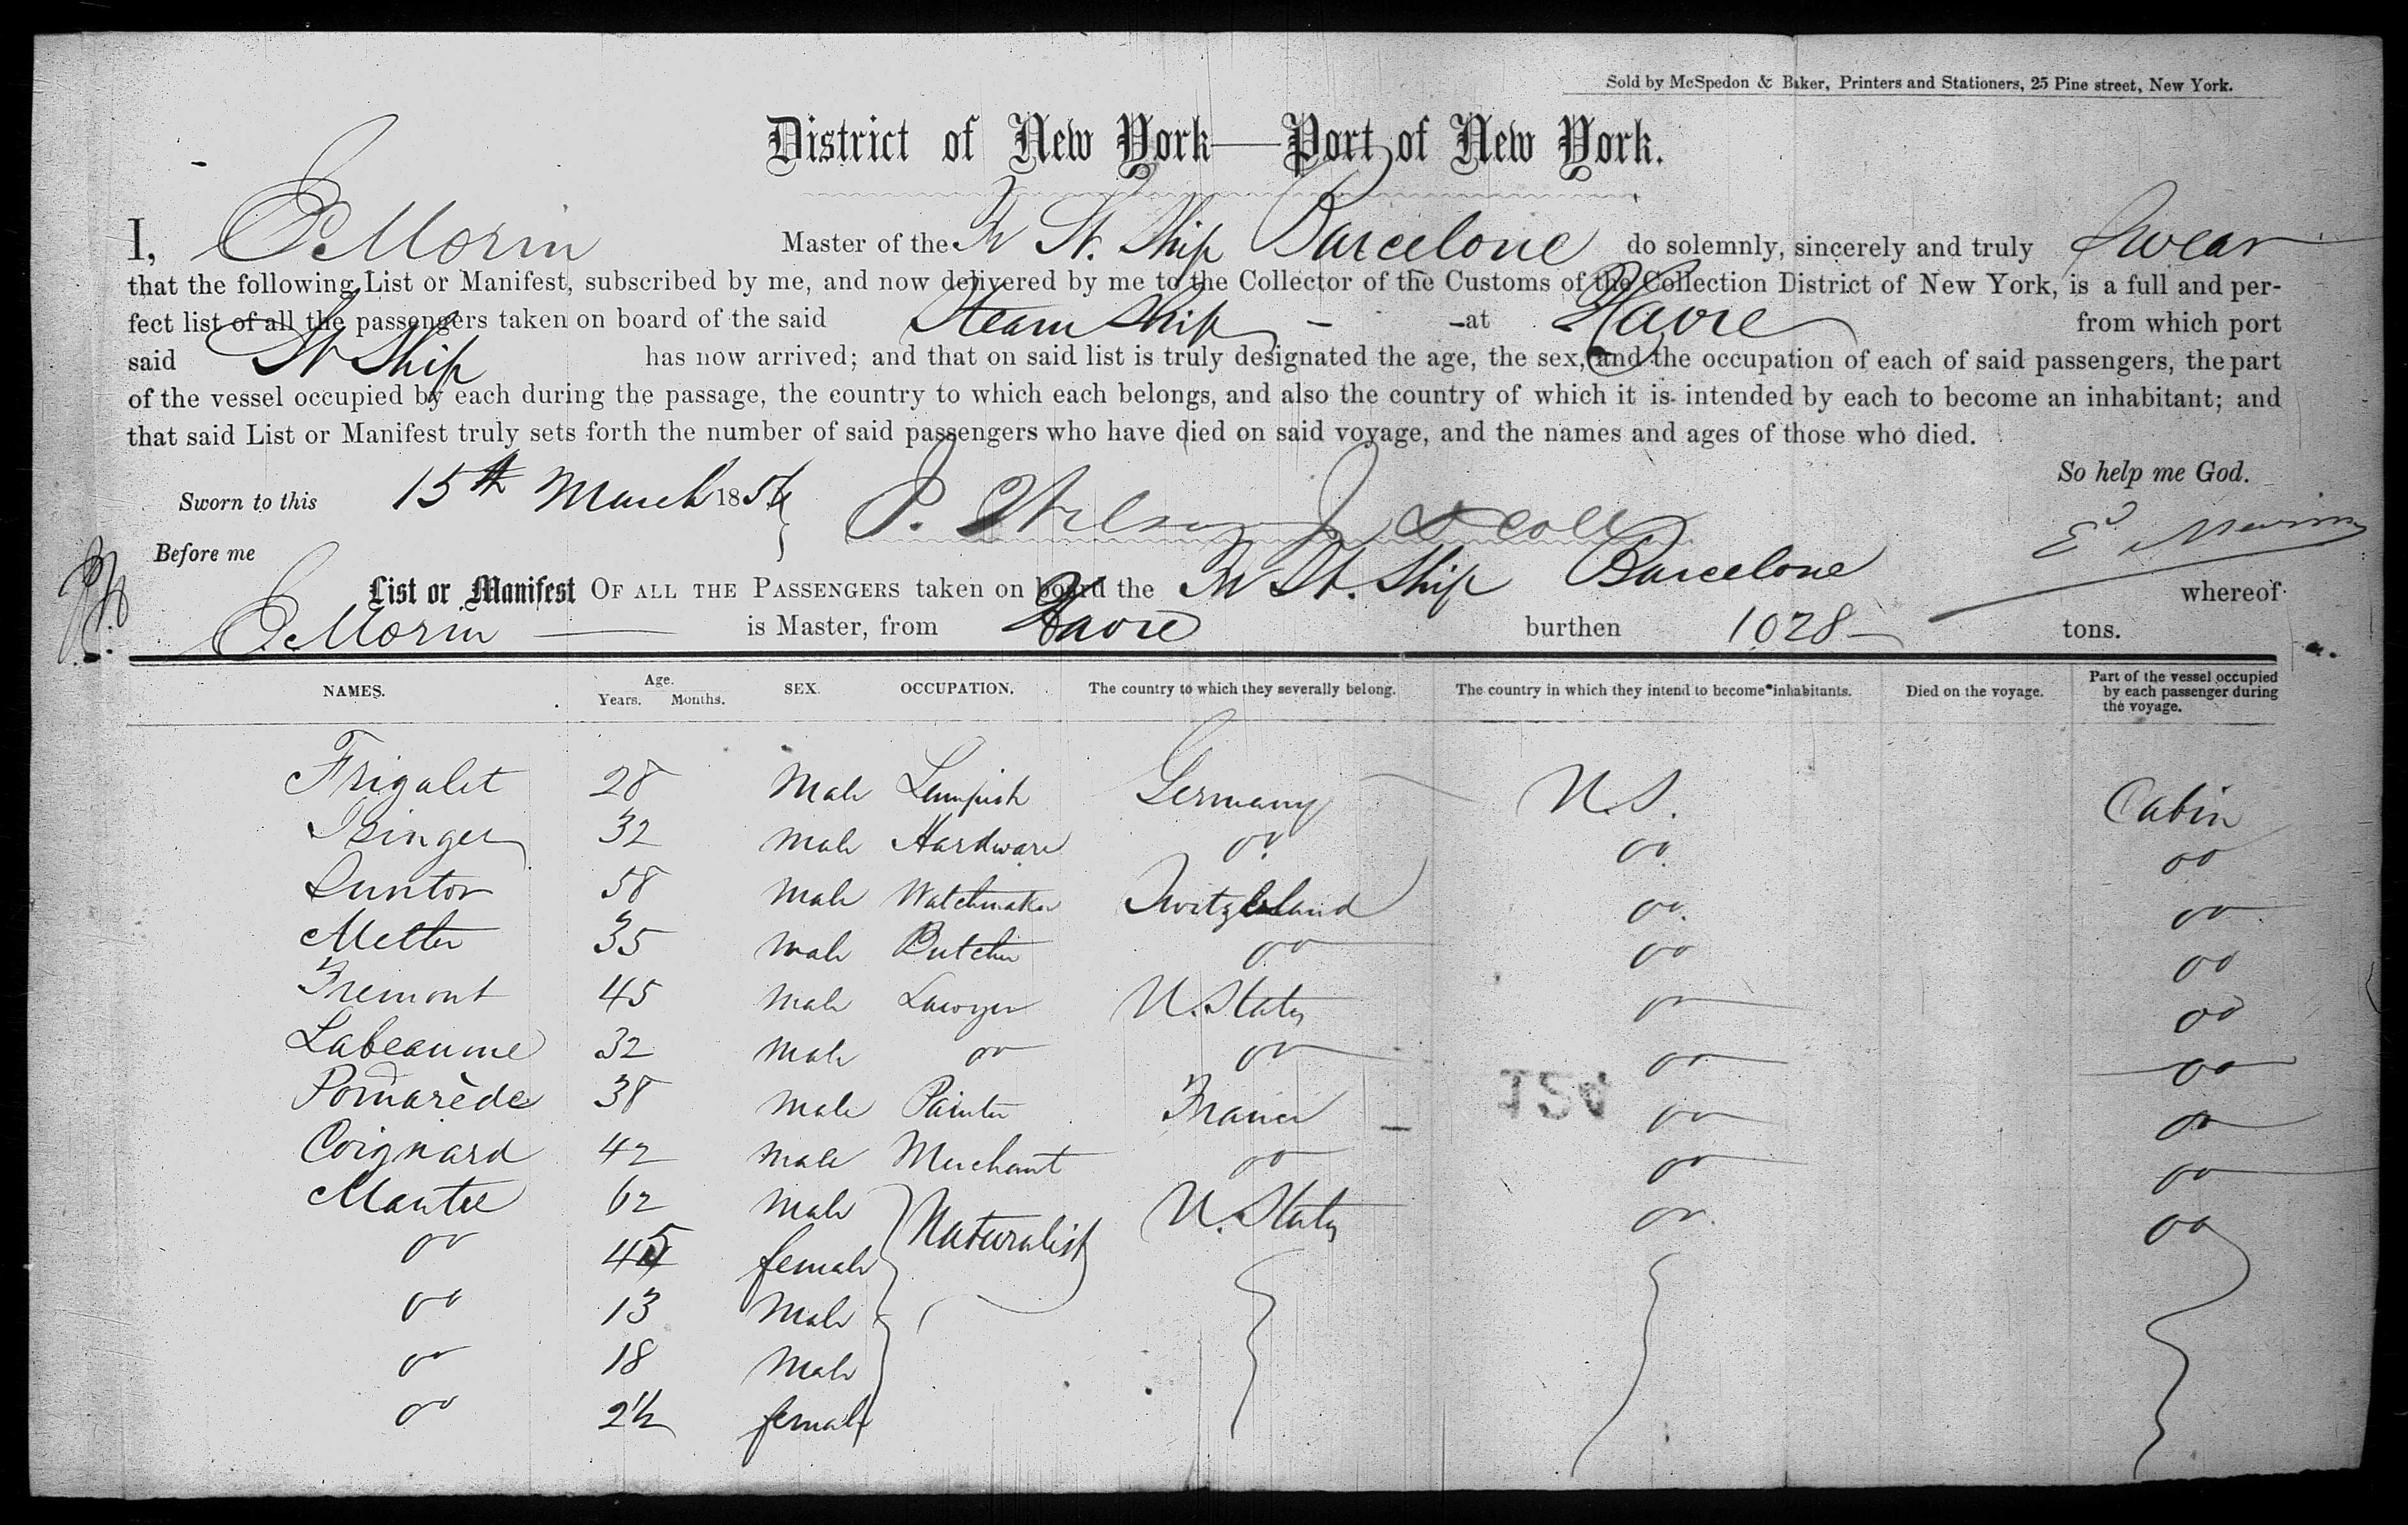 Sold by McSpedon & Baker, Printers and Stationers, 25 Pine street, New York.
District of New York—Port of New York.
I, E Morin Master of the Fr St. Ship Barcelone do solemnly, sincerely and truly Swear
that the following List or Manifest, subscribed by me, and now delivered by me to the Collector of the Customs of the Collection District of New York, is a full and per-
fect list of all the passengers taken on board of the said Steam Ship - - at Havre from which port
said St Ship has now arrived; and that on said list is truly designated the age, the sex, and the occupation of each of said passengers, the part
of the vessel occupied by each during the passage, the country to which each belongs, and also the country of which it is intended by each to become an inhabitant; and
that said List or Manifest truly sets forth the number of said passengers who have died on said voyage, and the names and ages of those who died.
So help me God.
Sworn to this 15th March 1856
E Morin
Before me
List or Manifest OF ALL THE PASSENGERS taken on board the Fr St. Ship Barcelone whereof
E Morin — is Master, from Havre burthen 1028 — tons.
NAMES. Age. Years. Months. SEX. OCCUPATION. The country to which they severally belong. The country in which they intend to become inhabitants. Died on the voyage. Part of the vessel occupied by each passenger during the voyage.
Frigalet 28 Male Germany U.S. Cabin
Isinger 32 Male Hardware do do do
Suntor 58 Male Watchmaker Switzerland do do
Metter 35 Male Butcher do do do
Fremont 45 Male Lawyer U. States do do
Labeaume 32 Male do do do do
Pomarède 38 Male Painter France do do
Coignard 42 Male Merchant do do do
Mantee 62 Male Naturalist U. States do do
do 45 female
do 13 Male
do 18 Male
do 2½ female